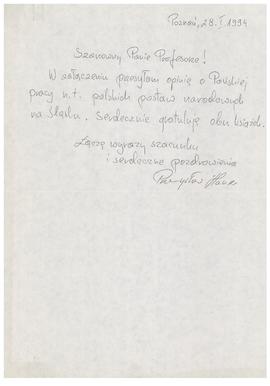 Poznań, 28.I 1994
Szanowny Panie Profesorze!
W załączeniu przesyłam opinię o Pańskiej
pracy n.t. polskich postaw narodowych
na Śląsku. Serdecznie gratuluję obu książek.
Łączę wyrazy szacunku
i serdeczne pozdrowienia
Przemysław